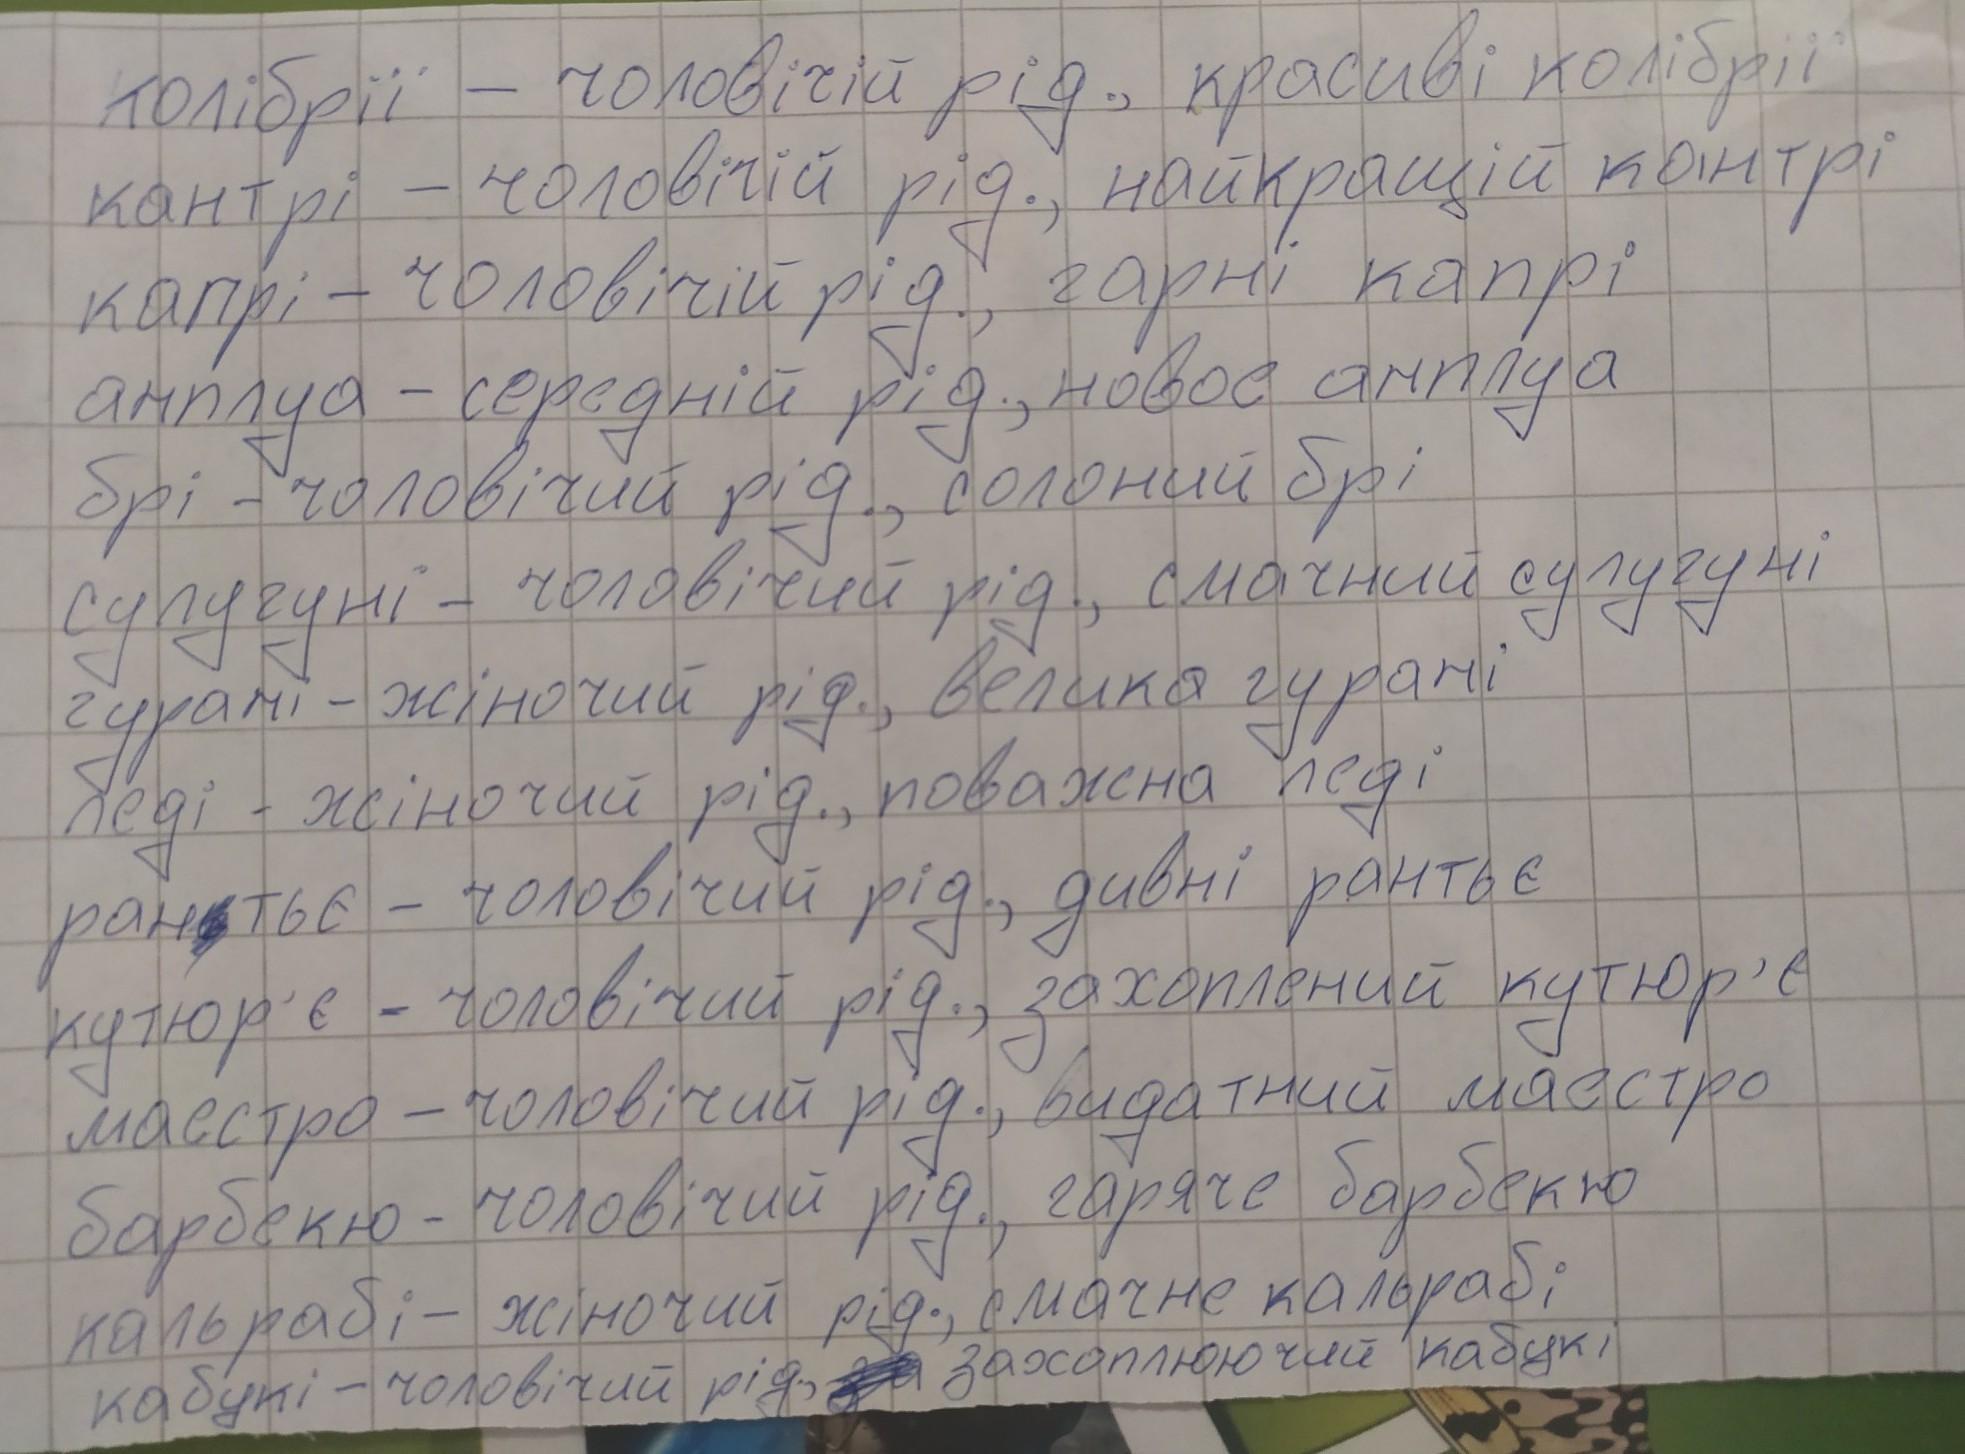 колібрії – чоловічій рід., красиві колібрії
кантрі – чоловічій рід., найкращій кантрі
капрі – чоловічій рід., гарні капрі
анплуа – середній рід., новое анплуа
брі – чоловічий рід., солоний брі
сулугуні – чоловічий рід., смачний сулугуні
гурамі – жіночий рід., велика гурамі
леді - жіночий рід., поважна леді
рантьє – чоловічий рід., дивні рантьє
кутюр'є – чоловічий рід., захоплений кутюр'є
маестро – чоловічий рід., видатний маестро
барбекю - чоловічий рід., гаряче барбекю
кальрабі – жіночий рід., смачне кальрабі
кабукі – чоловічий рід., захоплюючий кабукі